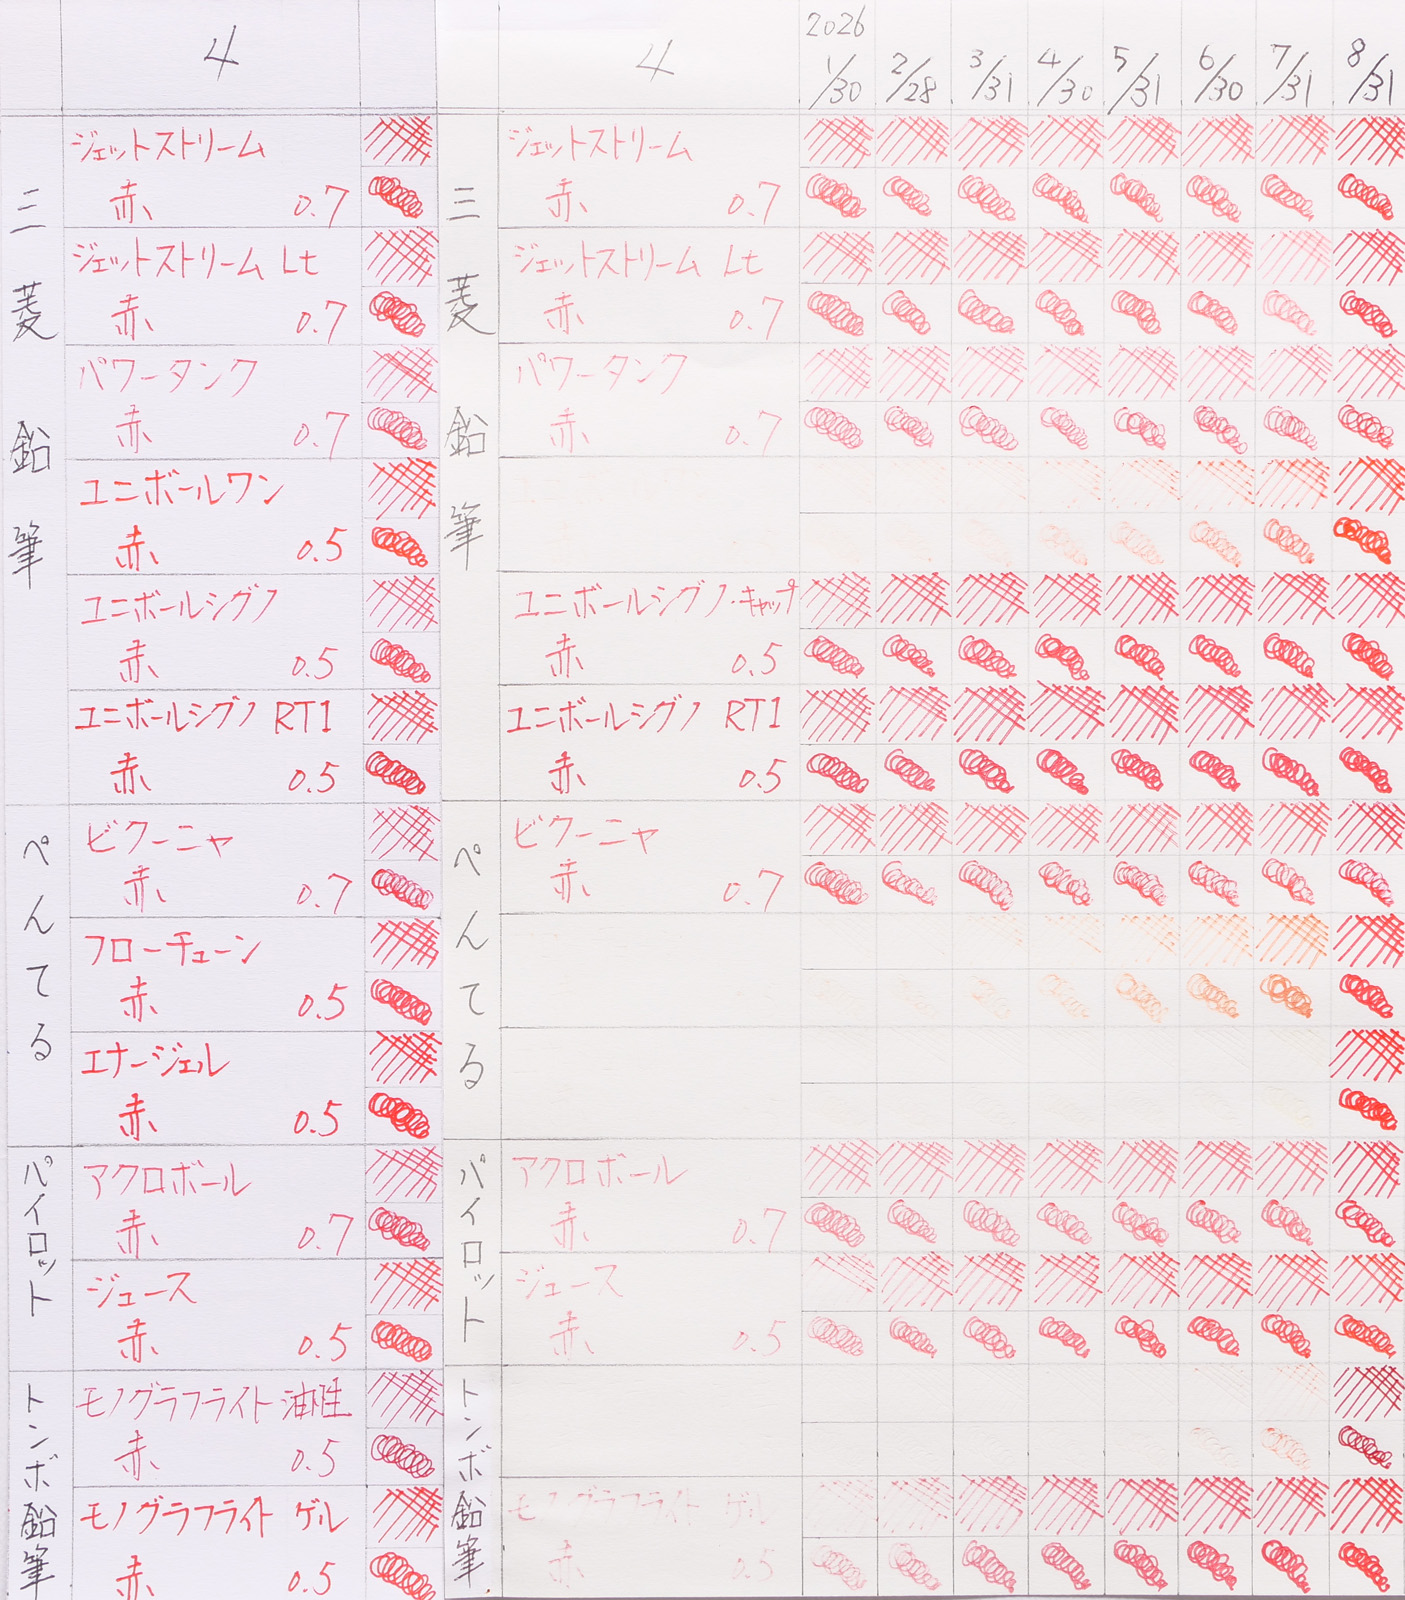 4
三菱鉛筆
ジェットストリーム
赤 0.7
ジェットストリーム Lt
赤 0.7
パワータンク
赤 0.7
ユニボールワン
赤 0.5
ユニボールシグノ
赤 0.5
ユニボールシグノ RT1
赤 0.5
ぺんてる
ビクーニャ
赤 0.7
フローチューン
赤 0.5
エナージェル
赤 0.5
パイロット
アクロボール
赤 0.7
ジュース
赤 0.5
トンボ鉛筆
モノグラフライト油性
赤 0.5
モノグラフライト ゲル
赤 0.5
4
2026
1/30 2/28 3/31 4/30 5/31 6/30 7/31 8/31
三菱鉛筆
ジェットストリーム
赤 0.7
ジェットストリーム Lt
赤 0.7
パワータンク
赤 0.7
ユニボールシグノ・キャップ
赤 0.5
ユニボールシグノ RT1
赤 0.5
ぺんてる
ビクーニャ
赤 0.7
パイロット
アクロボール
赤 0.7
ジュース
赤 0.5
トンボ鉛筆
モノグラフライト ゲル
赤 0.5